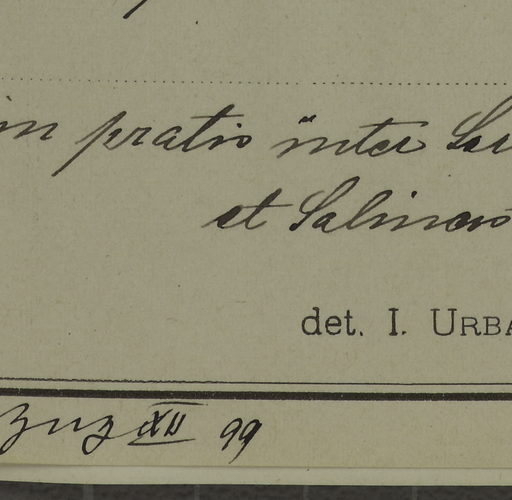 in pratis inter
et Salinas
det. I. URBA
XII 99